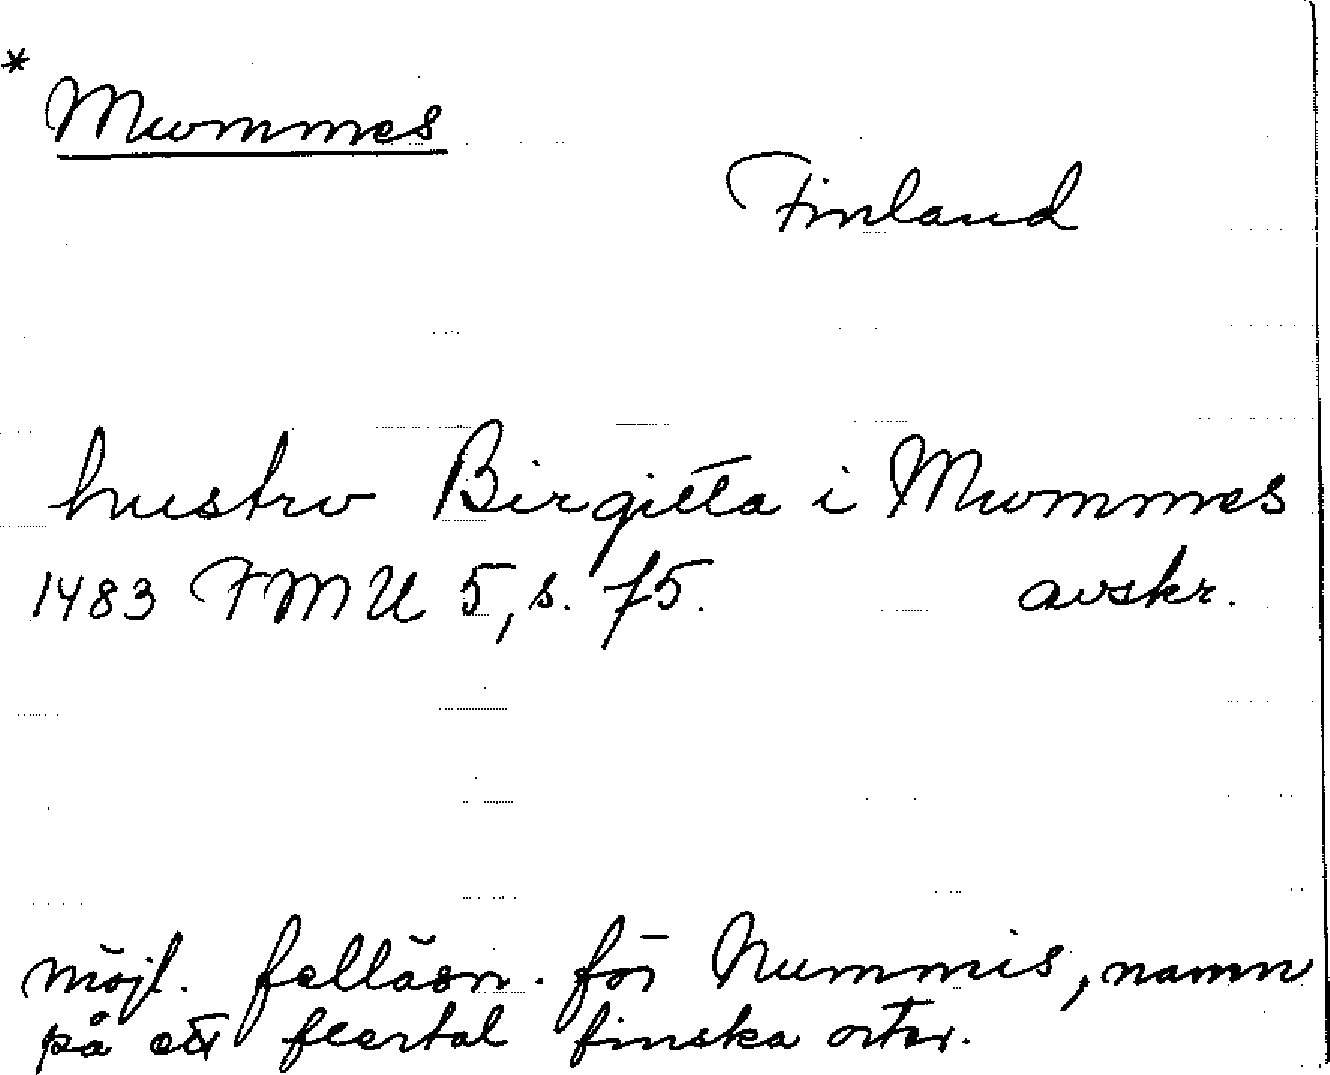 * Mummes
Finland
hustru Birgitta i Mummes
1483 FMU 5, s. 75. avskr.
möjl. felläsn. för Nummis, namn
på ett flertal finska orter.